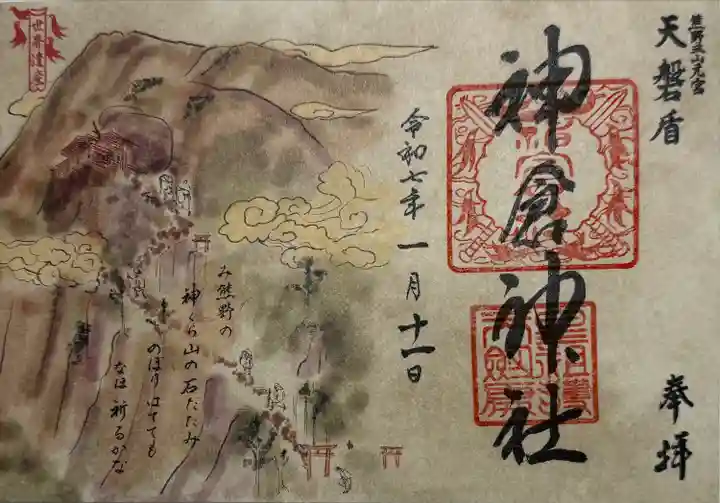 熊野三山元宮
天磐盾
奉拝
神倉神社
令和七年一月十一日
世界遺産
み熊野の
神くら山の石たたみ
のぼりはてても
なほ祈るかな